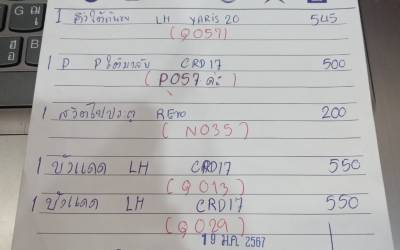 1 คิ้วใต้กันชน LH YARIS 20 545
(Q057)
1 P P ใต้บาลัง CRD17 500
(P057 ดะ)
1 สวิตไฟประตู REVO 200
(N035)
1 บัวแดด LH CRD17 550
(Q013)
1 บัวแดด LH CRD17 550
(Q029)
19 ม.ค. 2567